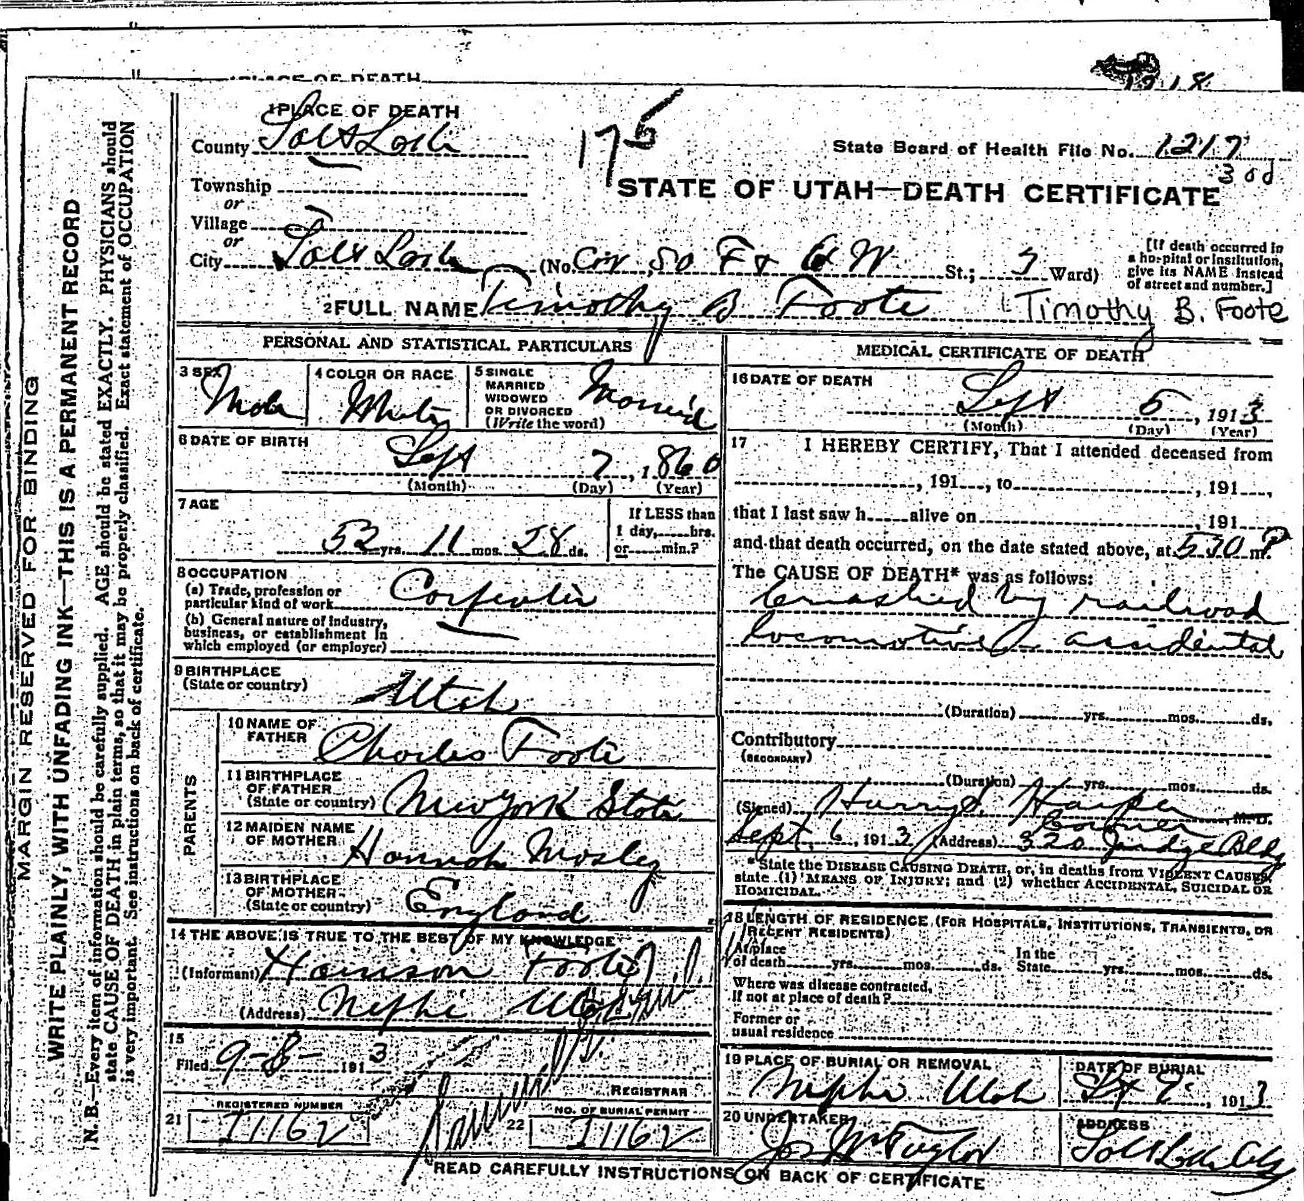 PLACE OF DEATH
1218
1 PLACE OF DEATH
County Salt Lake
175
State Board of Health File No. 1217
300
STATE OF UTAH—DEATH CERTIFICATE
Township
or
Village
or
City Salt Lake (No. Cor So F & 6 W St.; 5 Ward)
[If death occurred in a hospital or institution, give its NAME instead of street and number.]
2 FULL NAME Timothy B Foote
Timothy B. Foote
PERSONAL AND STATISTICAL PARTICULARS
3 SEX Male
4 COLOR OR RACE White
5 SINGLE MARRIED WIDOWED OR DIVORCED (Write the word) Married
6 DATE OF BIRTH
Sept 7, 1860
(Month) (Day) (Year)
7 AGE
52 yrs. 11 mos. 28 ds.
If LESS than 1 day, hrs. or min.?
8 OCCUPATION
(a) Trade, profession or particular kind of work Carpenter
(b) General nature of industry, business, or establishment in which employed (or employer)
9 BIRTHPLACE
(State or country) Utah
PARENTS
10 NAME OF FATHER Charles Foote
11 BIRTHPLACE OF FATHER (State or country) New York State
12 MAIDEN NAME OF MOTHER Hannah Mosley
13 BIRTHPLACE OF MOTHER (State or country) England
14 THE ABOVE IS TRUE TO THE BEST OF MY KNOWLEDGE
(Informant) Harrison Foote
(Address) Nephi Utah
15
Filed 9-8- 1913
REGISTRAR
21 REGISTERED NUMBER I1162
22 NO. OF BURIAL PERMIT I1162
MEDICAL CERTIFICATE OF DEATH
16 DATE OF DEATH
Sept 5, 1913
(Month) (Day) (Year)
17 I HEREBY CERTIFY, That I attended deceased from
, 191 , to , 191 ,
that I last saw h alive on , 191
and that death occurred, on the date stated above, at 530 m. P
The CAUSE OF DEATH* was as follows:
Crushed by railroad
locomotive accidental
(Duration) yrs. mos. ds.
Contributory
(SECONDARY)
(Duration) yrs. mos. ds.
(Signed) Harry S. Harper, M. D.
Coroner
Sept. 6, 1913 (Address) 320 Judge Bldg
*State the DISEASE CAUSING DEATH, or, in deaths from VIOLENT CAUSES, state (1) MEANS OF INJURY; and (2) whether ACCIDENTAL, SUICIDAL OR HOMICIDAL.
18 LENGTH OF RESIDENCE (FOR HOSPITALS, INSTITUTIONS, TRANSIENTS, OR RECENT RESIDENTS)
At place of death yrs. mos. ds. In the State yrs. mos. ds.
Where was disease contracted, if not at place of death?
Former or usual residence
19 PLACE OF BURIAL OR REMOVAL
Nephi Utah
DATE OF BURIAL
, 1913
20 UNDERTAKER
Jos Wm Taylor
ADDRESS
Salt Lake City
READ CAREFULLY INSTRUCTIONS ON BACK OF CERTIFICATE
MARGIN RESERVED FOR BINDING
WRITE PLAINLY, WITH UNFADING INK—THIS IS A PERMANENT RECORD
N. B.—Every item of information should be carefully supplied. AGE should be stated EXACTLY. PHYSICIANS should
state CAUSE OF DEATH in plain terms, so that it may be properly classified. Exact statement of OCCUPATION
is very important. See instructions on back of certificate.